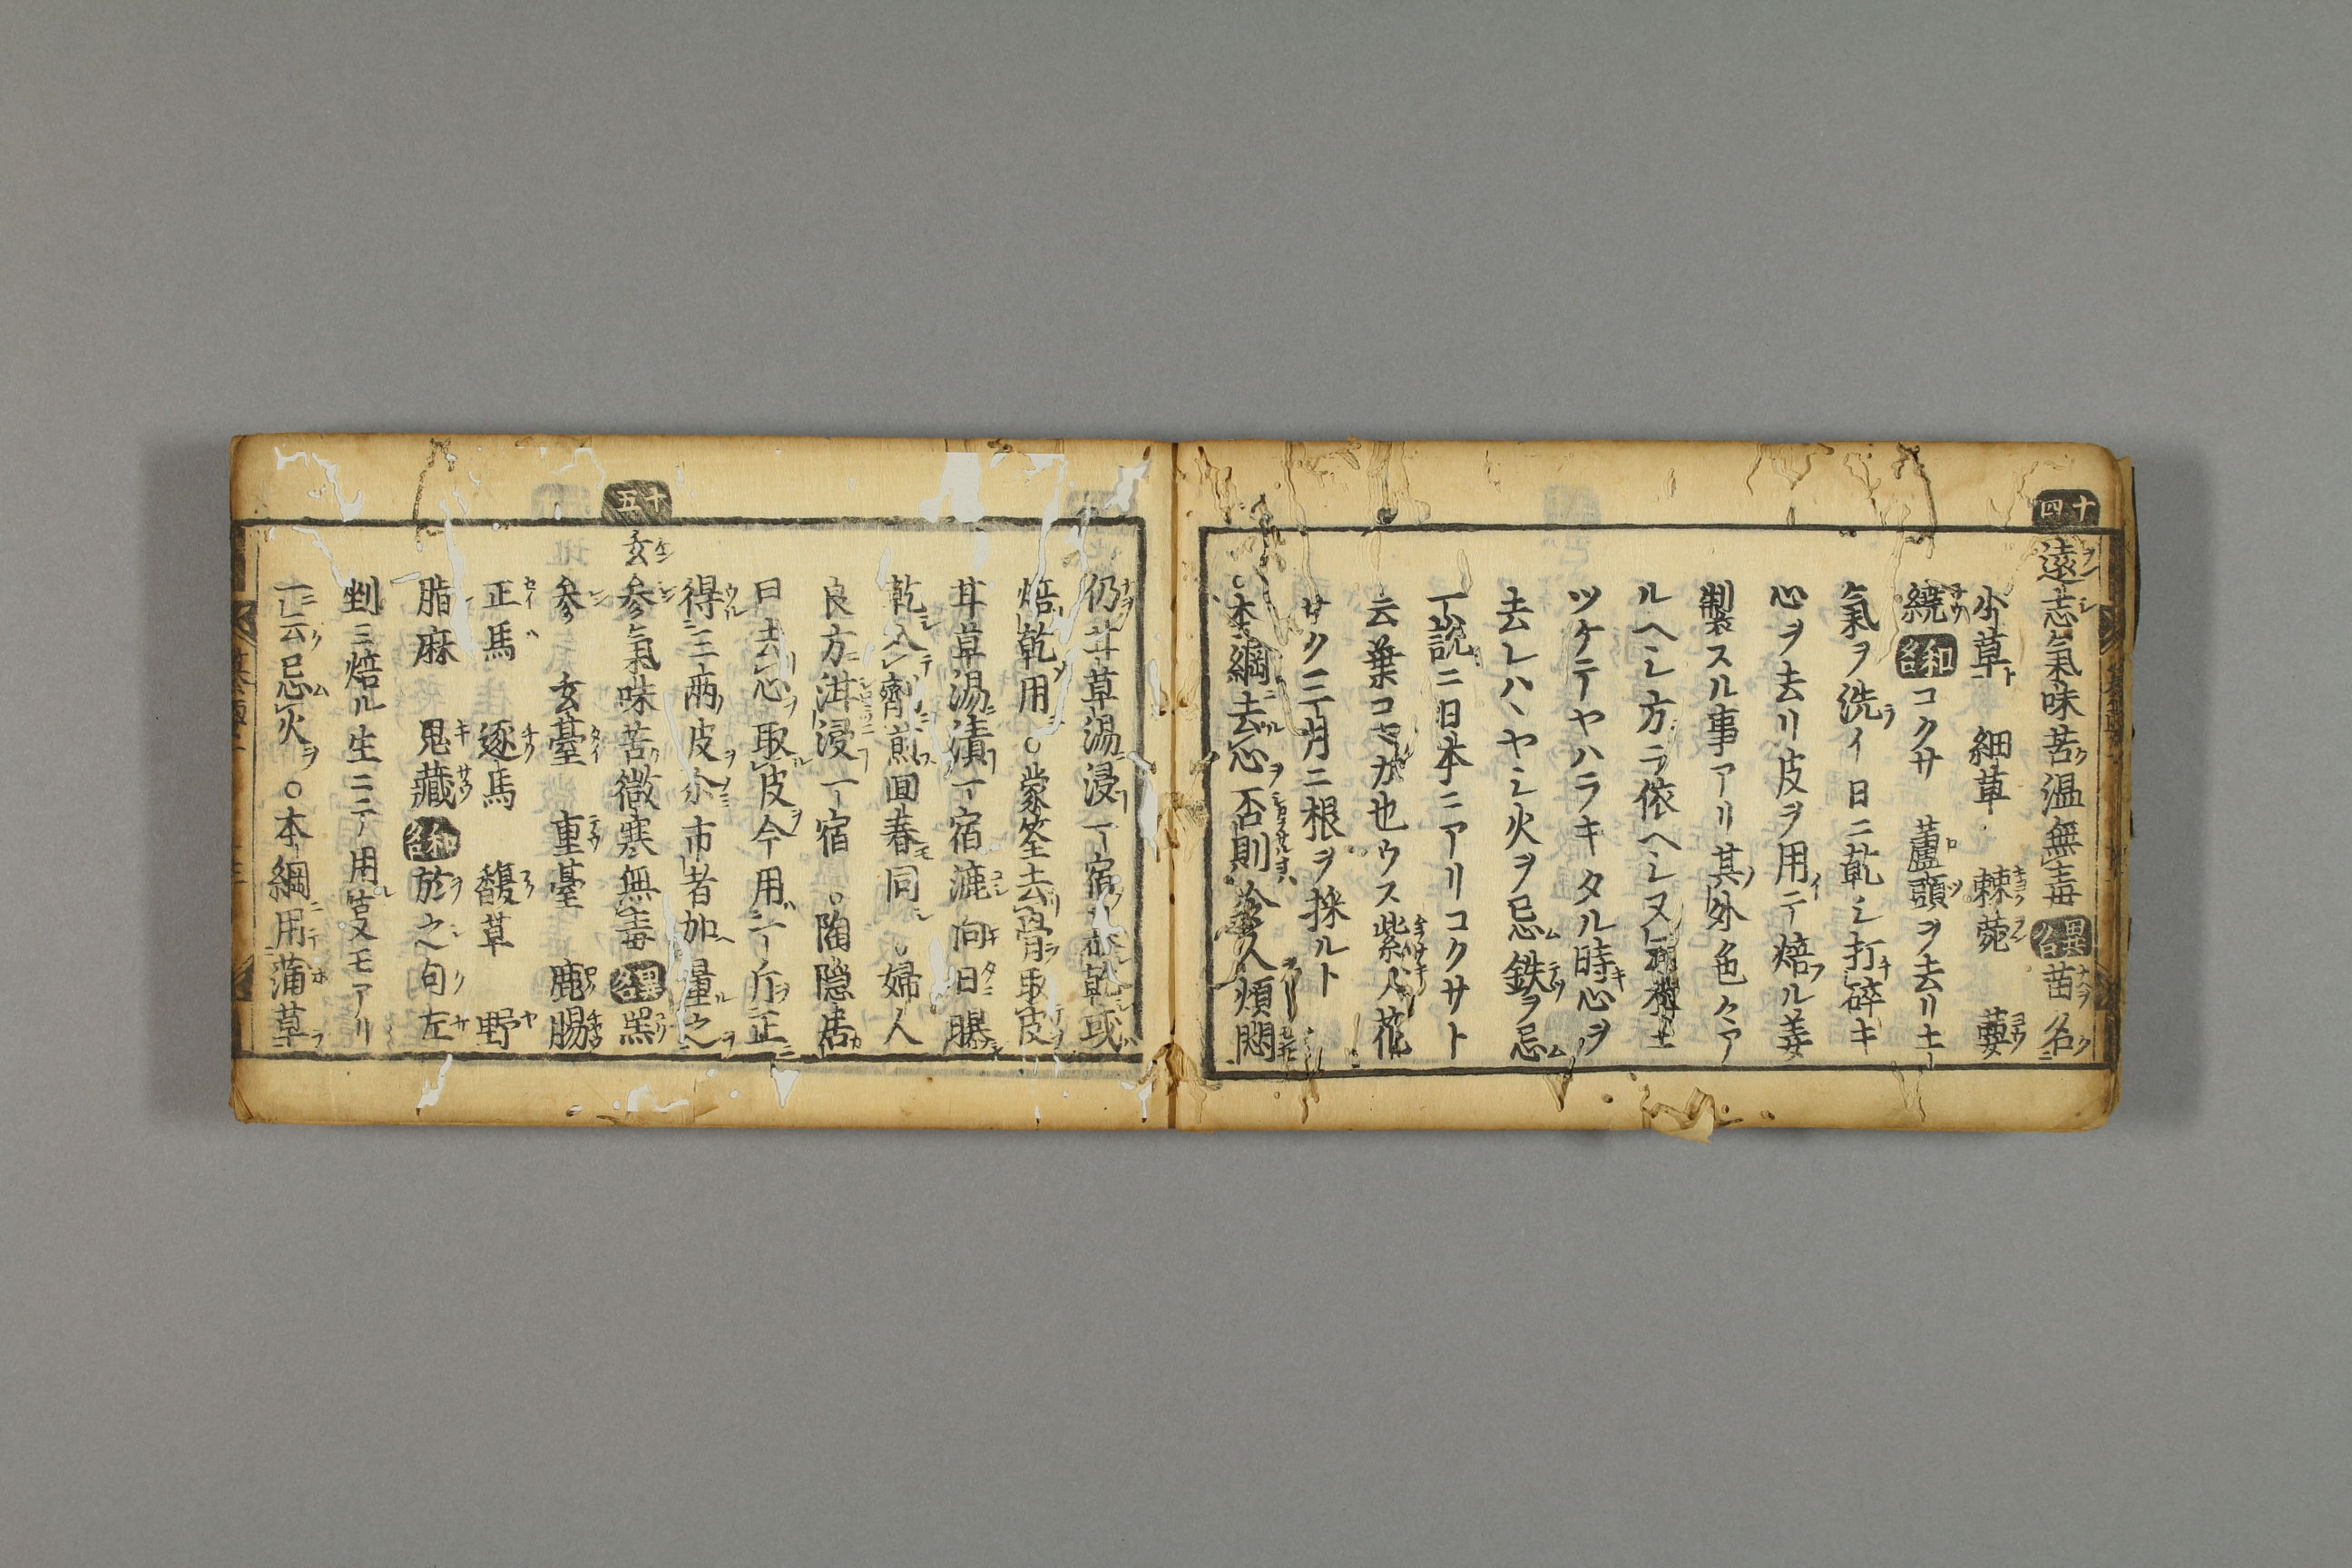 十四
遠志氣味苦温無毒異名苗名
小草 細草 棘菀 葽
繞和名コクサ 蘆頭ヲ去リ土
氣ヲ洗イ日ニ乾シ打碎キ
心ヲ去リ皮ヲ用テ焙ル姜
製スル事アリ其外色々ア
ルヘシ方ニ依ヘシ又
ツケテヤハラキタル時心ヲ
去レハハヤシ火ヲ忌鉄ヲ忌
一説ニ日本ニアリコクサト
云葉コマカ也ウス紫ノ花
サク三月ニ根ヲ採ルト
○本綱去心否則令人煩悶
仍甘草湯浸一宿 乾或
焙乾用○蒙筌去骨取皮
甘草湯漬一宿漉向日曝
乾入劑煎回春同○婦人
良方泔浸一宿○陶隠居
曰去心取皮今用一斤正
得三兩皮尓市者加量之
十五
玄参氣味苦微寒無毒異名黒
参 玄臺 重臺 鹿腸
正馬 逐馬 馥草 野
脂麻 鬼藏和名於之久左
剉ミ焙ル生ニテ用ルモアリ
一云忌火○本綱用蒲草